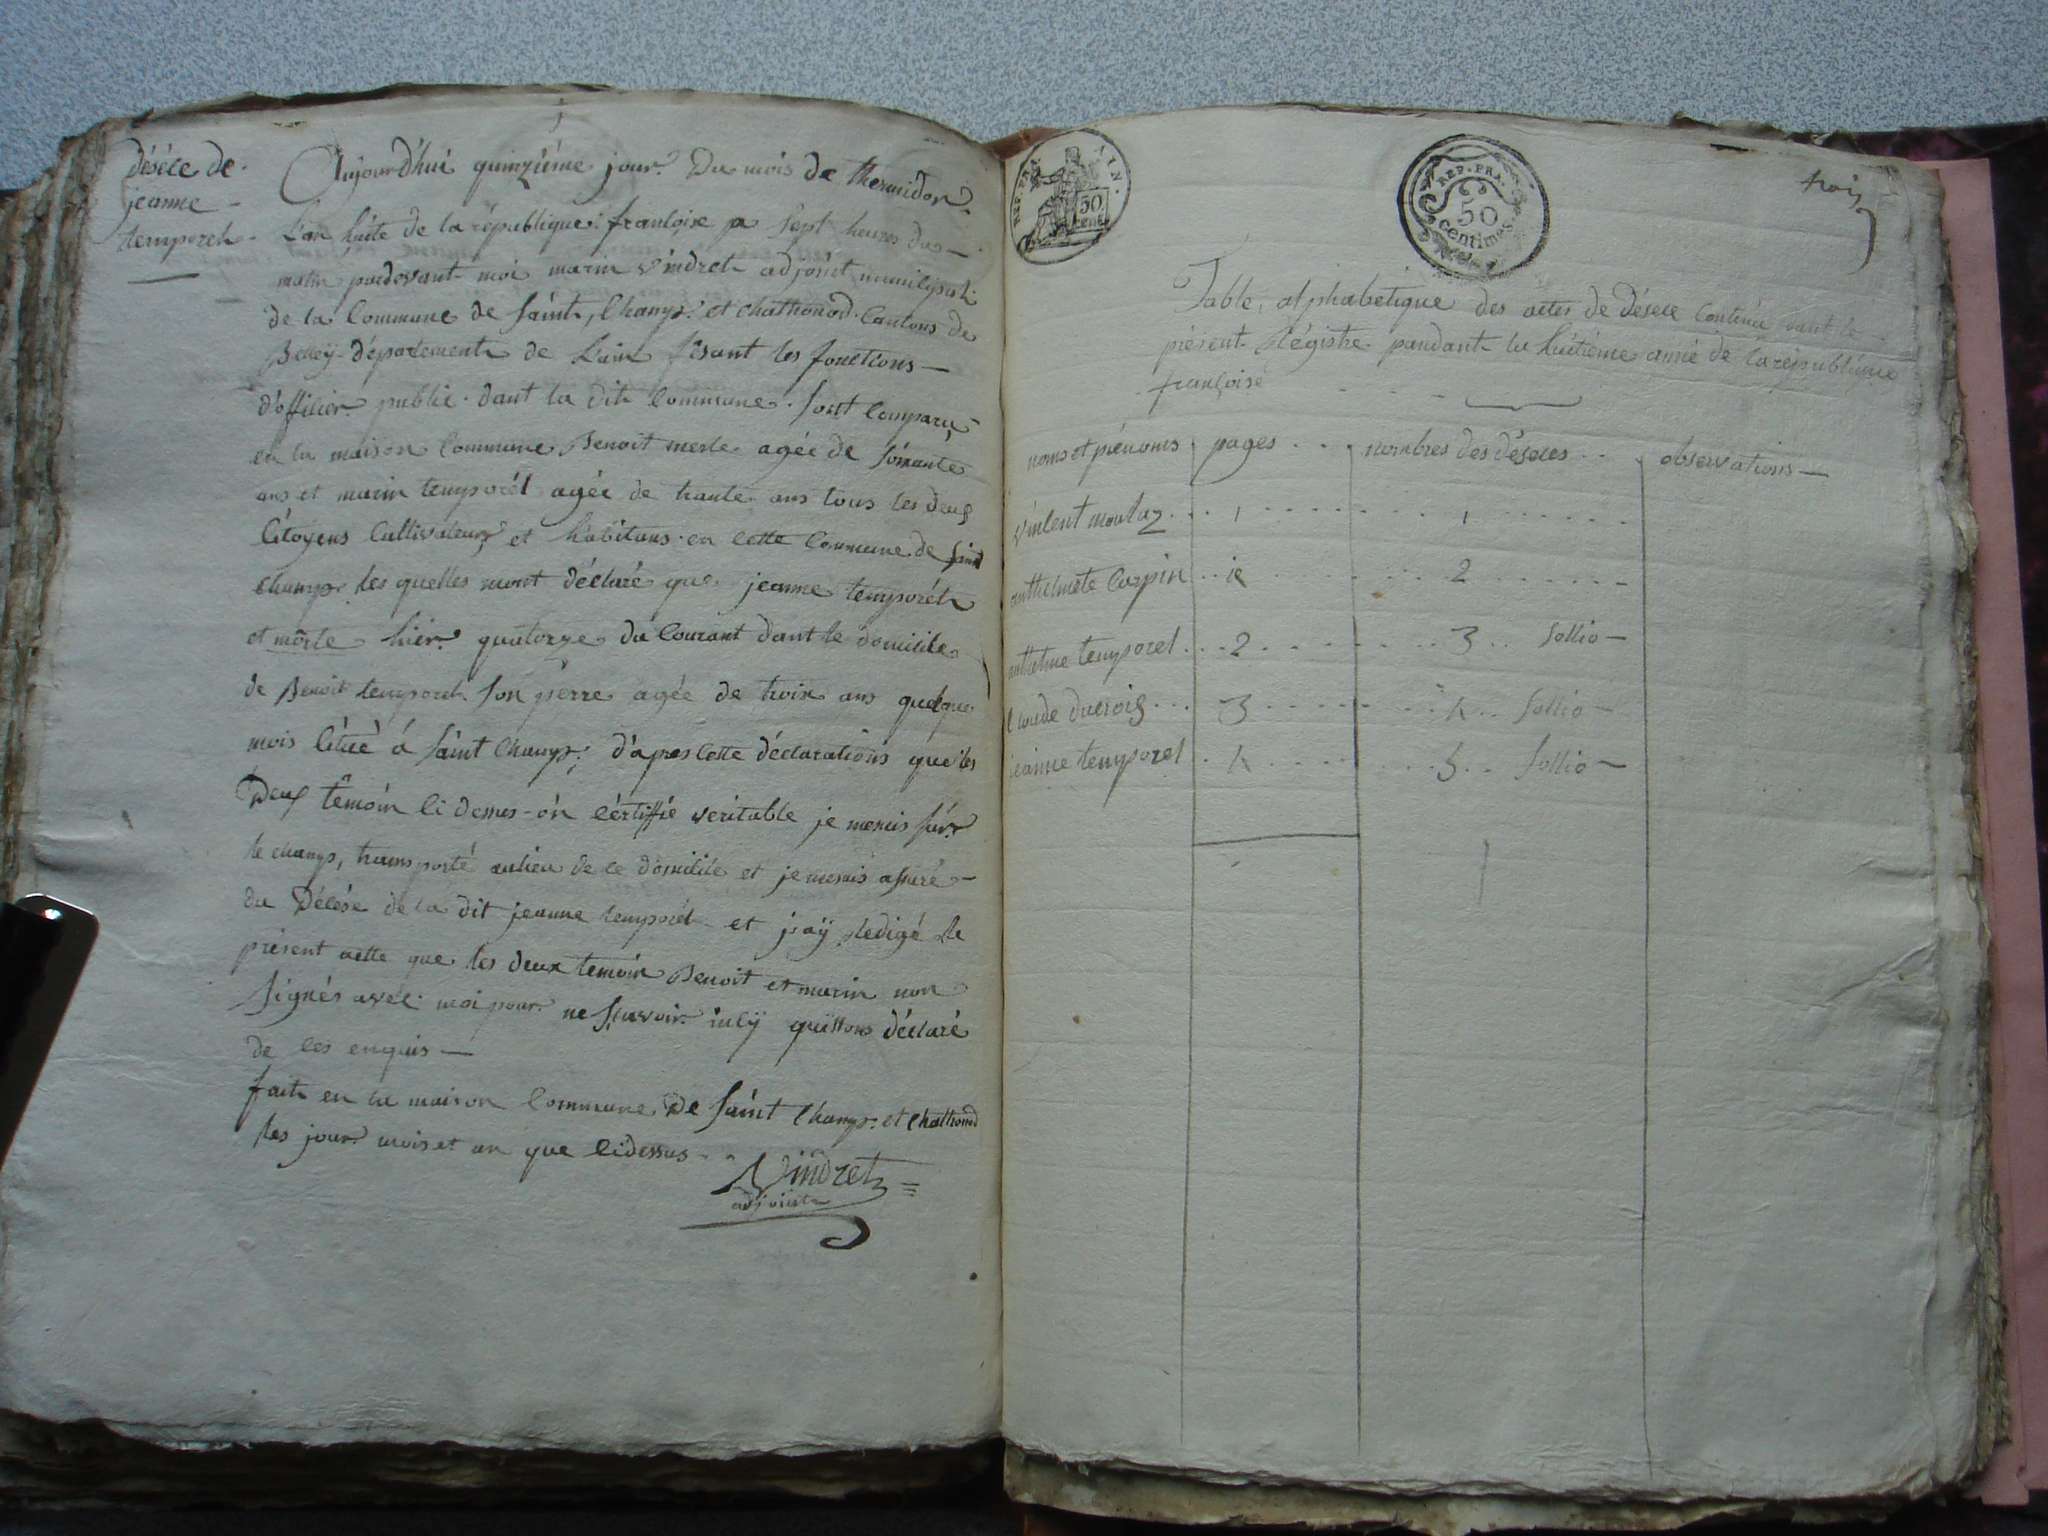 déséce de
jeanne
temporel
Aujourd'hui quinziéme jour Du mois de thermidor
L'an huite de la république francoise a sept heures du
matin pardevant moi marin vindret adjoint municipal
de la Commune de saint Champ et chathonod Cantons de
Belleÿ département de L'ain fésant les fonctions
d'officier public dant la dit Commune sont Comparu
en la maison Commune Benoit merle agée de soixante
ans et marin temporél agée de trante ans tous les deux
Citoyens Cultivateurs et habitans en cette Commune de saint
Champ les quelles mont déclaré que jeanne temporél
et morte hier quatorze du Courant dant le domicile
de Benoit temporel son pérre agée de troix ans quelque
mois Citué á saint Champ d'apres Cette déclarations que les
Deux témoin Ci desus on cértiffié véritable je me suis sur
le champ, transporté aulieu de ce domicile et je me suis assuré
du Décése de la dit jeanne temporél et j'aÿ redigé le
présent acte que les deux temoin Benoit et marin non
signés avéc moi pour ne scavoir inCÿ quillons déclaré
de Ces enquis
fait en la maison Commune De saint Champ et Chathonod
les jour mois et an que Cidessus
Vindret
adjoint
REP. FRA. AIN.
50 cent
REP. FRA.
50
centimes
trois
Table alphabétique des actes de Désece Contenu dant le
présent Régistre pandant la huitiéme anné de la république
françoise
noms et prénoms pages nombres des déseces observations
vincent moulaz 1 1
anthelmete Carpin 1r 2
anthelme temporel 2 3 follio
Claude ducroix 3 4 follio
jeanne temporel 4 5 follio